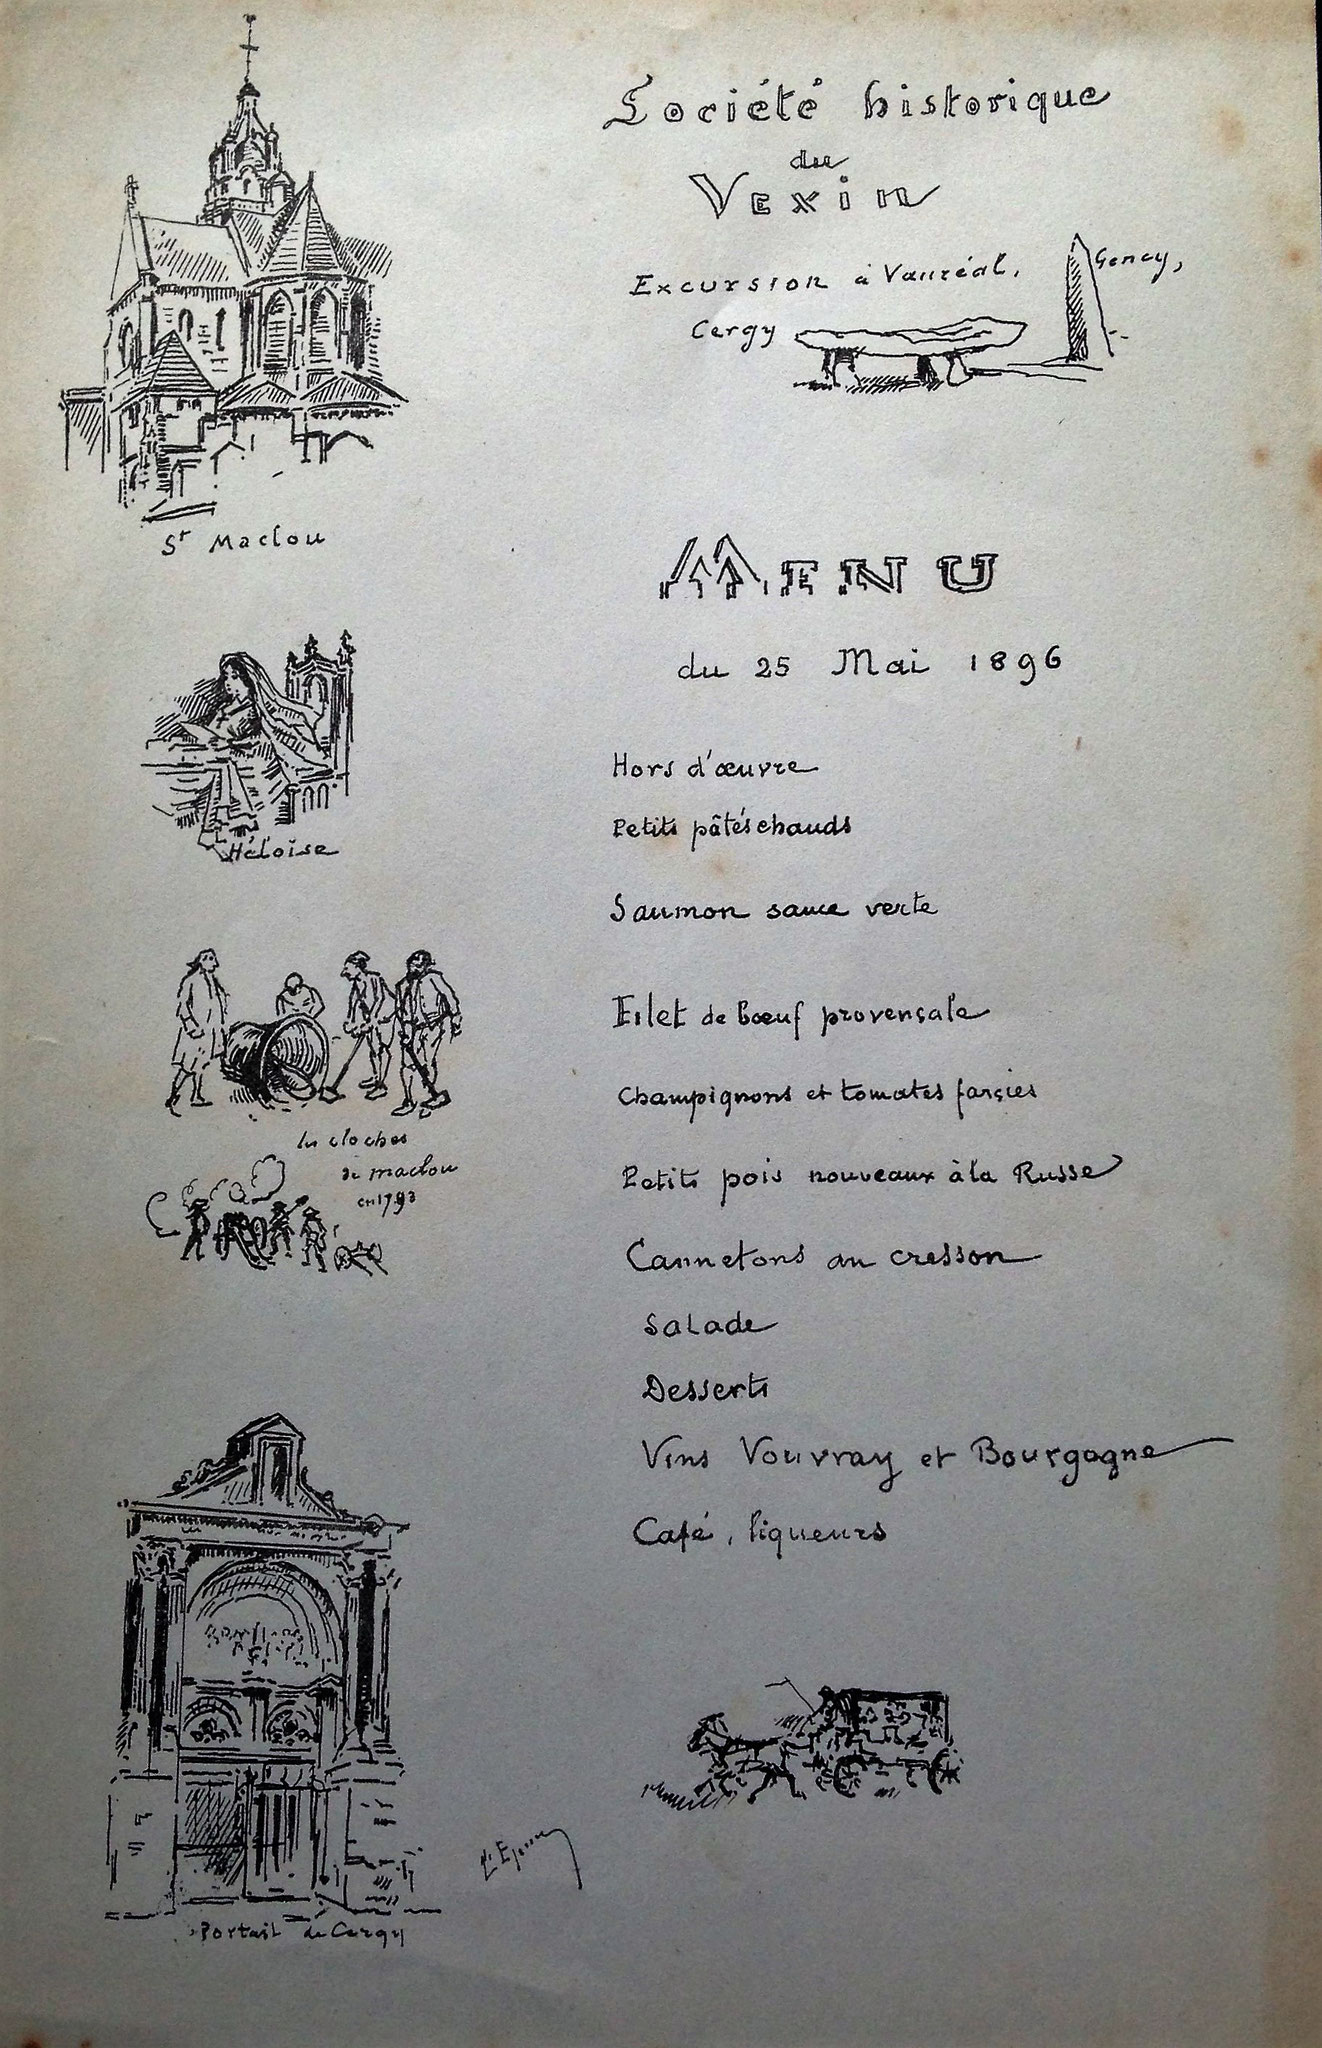 Société historique
du
Vexin
Excursion à Vauréal, Gency,
Cergy
St Maclou
Menu
du 25 Mai 1896
Héloïse
Hors d'œuvre
Petits pâtés chauds
Saumon sauce verte
Filet de bœuf provençale
Champignons et tomates farçies
Petits pois nouveaux à la Russe
Cannetons au cresson
Salade
Desserts
Vins Vouvray et Bourgogne
Café, liqueurs
les cloches
de Maclou
en 1793
Portail de Cergy